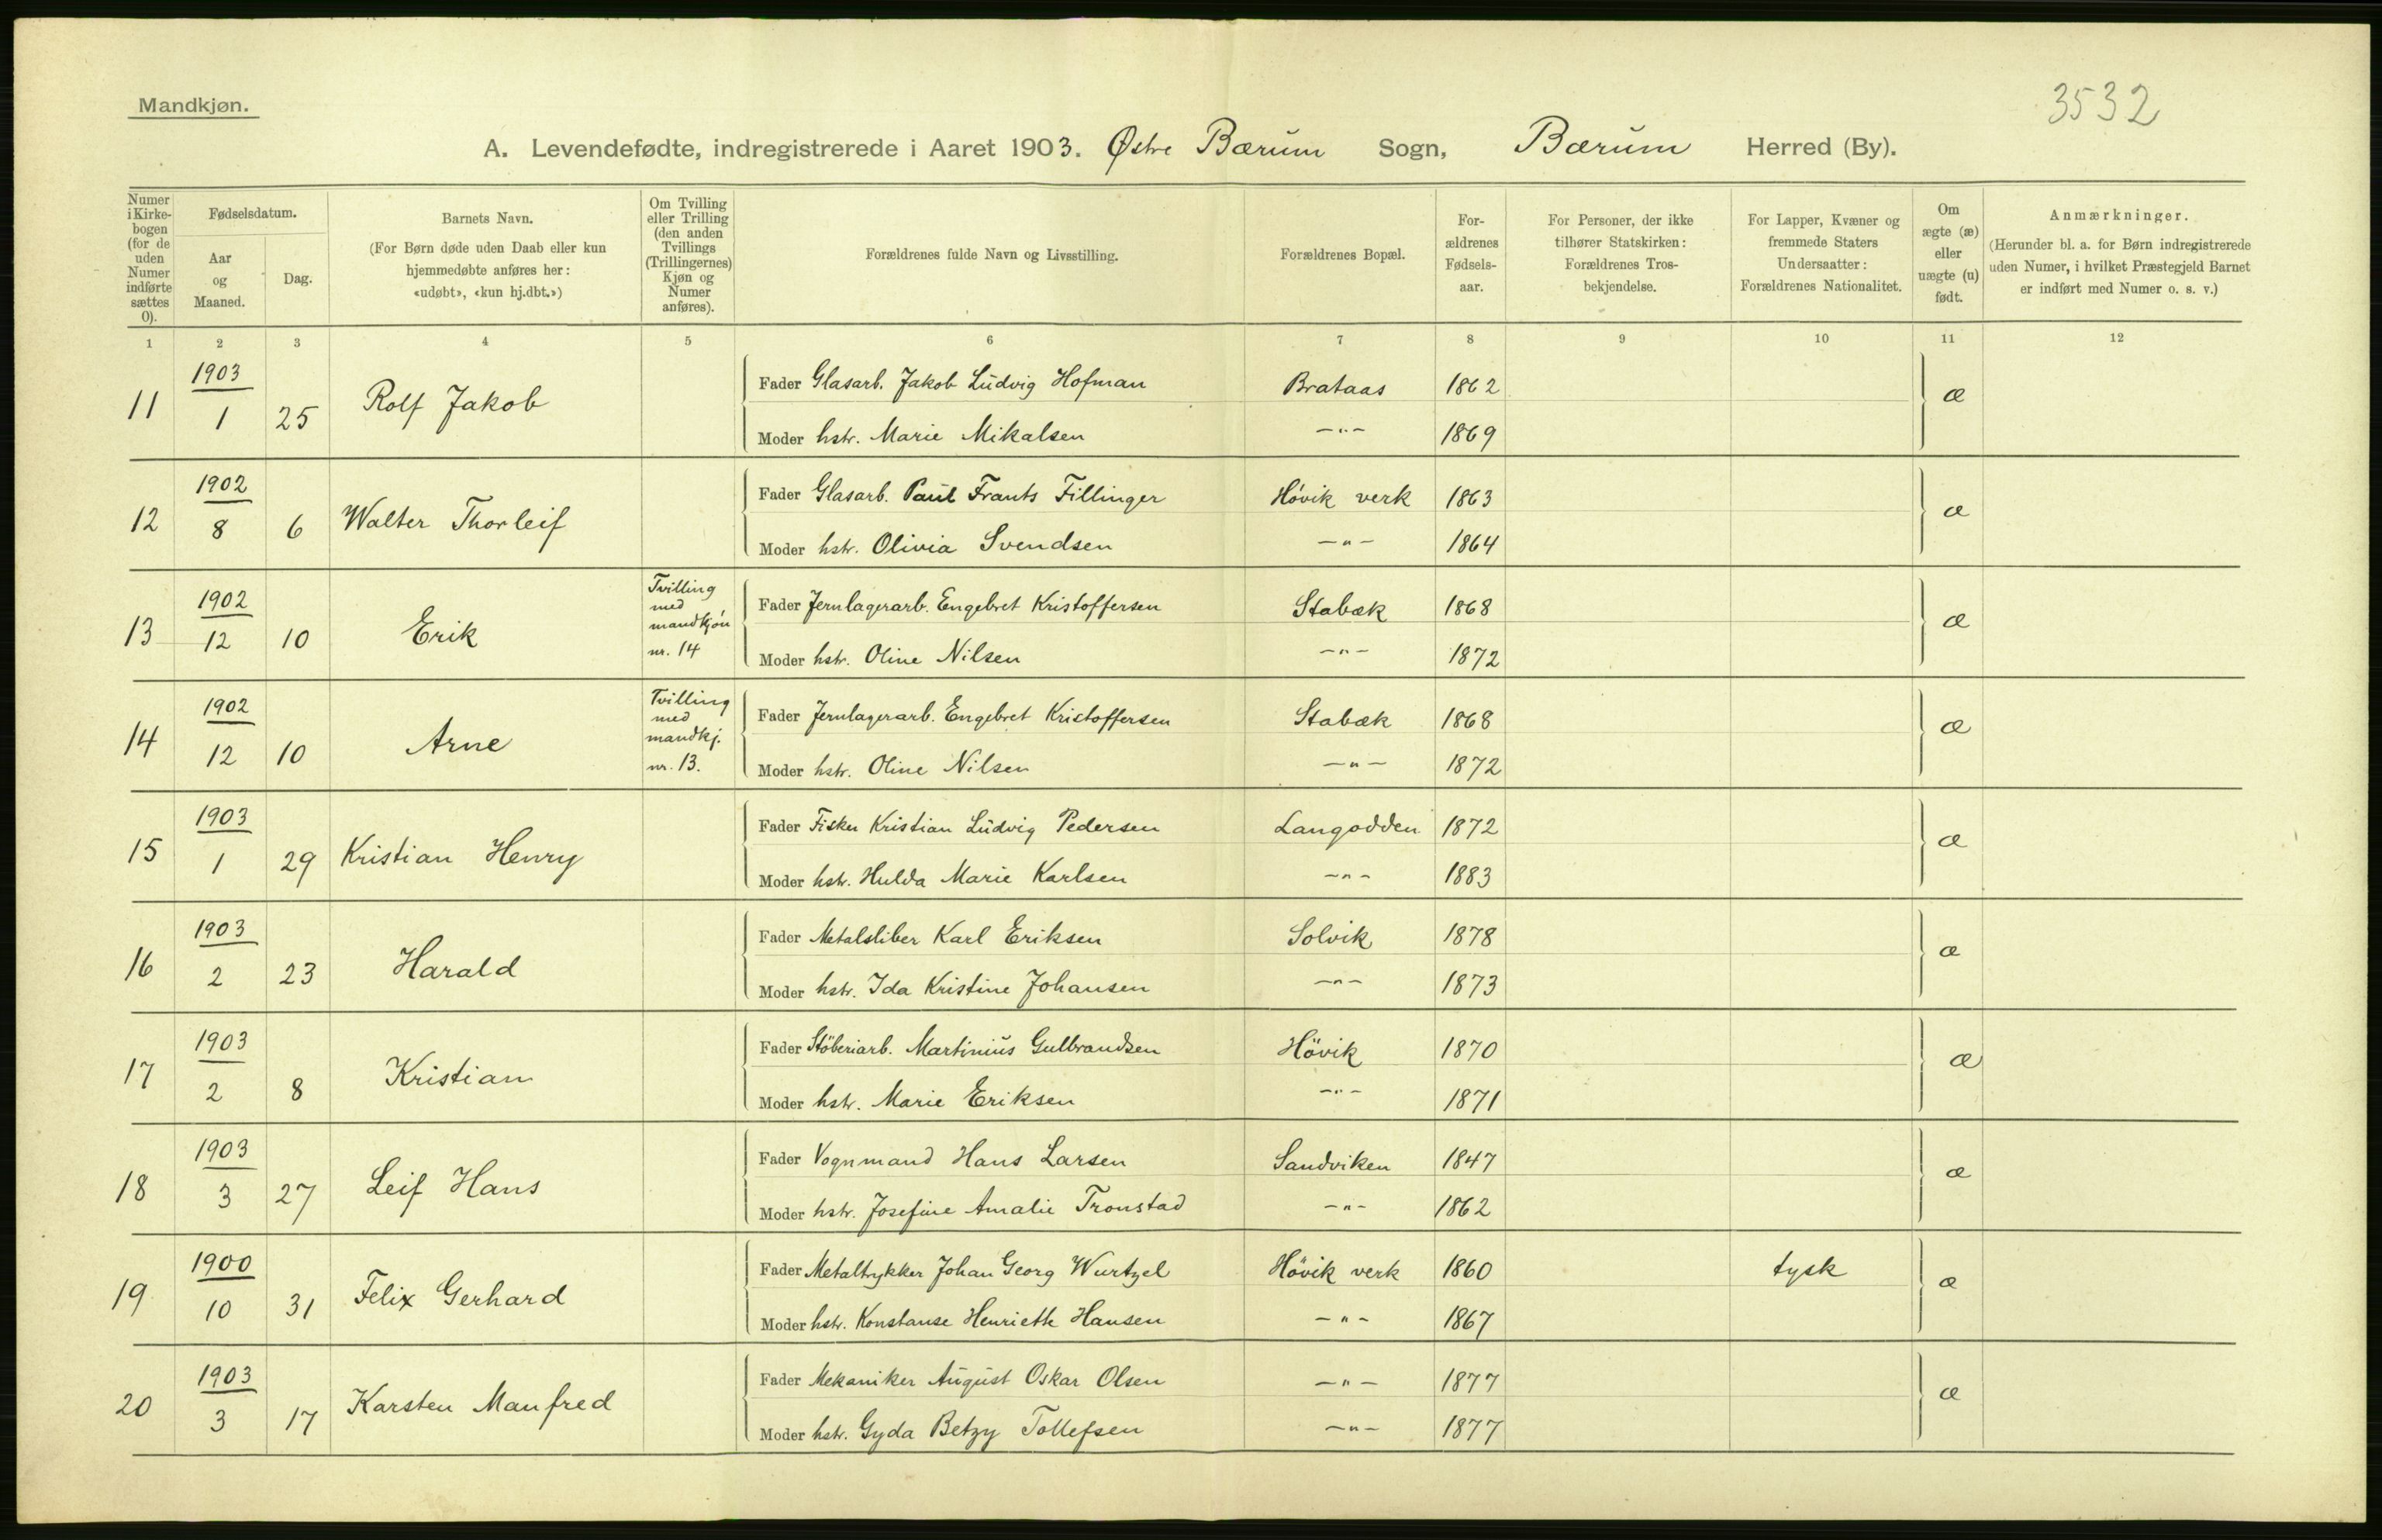 Mandkjøn.
3532
A. Levendefødte, indregistrerede i Aaret 1903. Østre Bærum Sogn, Bærum Herred (By).
Numer i Kirkebogen (for de uden Numer indførte sættes 0).
Fødselsdatum.
Aar og Maaned.
Dag.
Barnets Navn.
(For Børn døde uden Daab eller kun hjemmedøbte anføres her: «udøbt», «kun hj.dbt.»)
Om Tvilling eller Trilling (den anden Tvillings (Trillingernes) Kjøn og Numer anføres).
Forældrenes fulde Navn og Livsstilling.
Forældrenes Bopæl.
Forældrenes Fødselsaar.
For Personer, der ikke tilhører Statskirken: Forældrenes Trosbekjendelse.
For Lapper, Kvæner og fremmede Staters Undersaatter: Forældrenes Nationalitet.
Om ægte (æ) eller uægte (u) født.
Anmærkninger.
(Herunder bl. a. for Børn indregistrerede uden Numer, i hvilket Præstegjeld Barnet er indført med Numer o. s. v.)
1 2 3 4 5 6 7 8 9 10 11 12
11 1903 1 25 Rolf Jakob
Fader Glasarb. Jakob Ludvig Hofman Brataas 1862 æ
Moder hstr. Marie Mikalsen —"— 1869
12 1902 8 6 Walter Thorleif
Fader Glasarb. Paul Frants Fillinger Høvik verk 1863 æ
Moder hstr. Olivia Svendsen —"— 1864
13 1902 12 10 Erik Tvilling med mandkjøn nr. 14
Fader Jernlagerarb. Engebret Kristoffersen Stabæk 1868 æ
Moder hstr. Oline Nilsen —"— 1872
14 1902 12 10 Arne Tvilling med mandkj. nr. 13.
Fader Jernlagerarb. Engebret Kristoffersen Stabæk 1868 æ
Moder hstr. Oline Nilsen —"— 1872
15 1903 1 29 Kristian Henry
Fader Fisker Kristian Ludvig Pedersen Langodden 1872 æ
Moder hstr. Hulda Marie Karlsen —"— 1883
16 1903 2 23 Harald
Fader Metalsliber Karl Eriksen Solvik 1878 æ
Moder hstr. Ida Kristine Johansen —"— 1873
17 1903 2 8 Kristian
Fader Stöberiarb. Martinius Gulbrandsen Hövik 1870 æ
Moder hstr. Marie Eriksen —"— 1871
18 1903 3 27 Leif Hans
Fader Vognmand Hans Larsen Sandviken 1847 æ
Moder hstr. Josefine Amalie Tronstad —"— 1862
19 1900 10 31 Felix Gerhard
Fader Metaltrykker Johan Georg Wurtzel Hövik verk 1860 tysk æ
Moder hstr. Konstanse Henriette Hansen —"— 1867
20 1903 3 17 Karsten Manfred
Fader Mekaniker August Oskar Olsen —"— 1877 æ
Moder hstr. Gyda Betzy Tollefsen —"— 1877